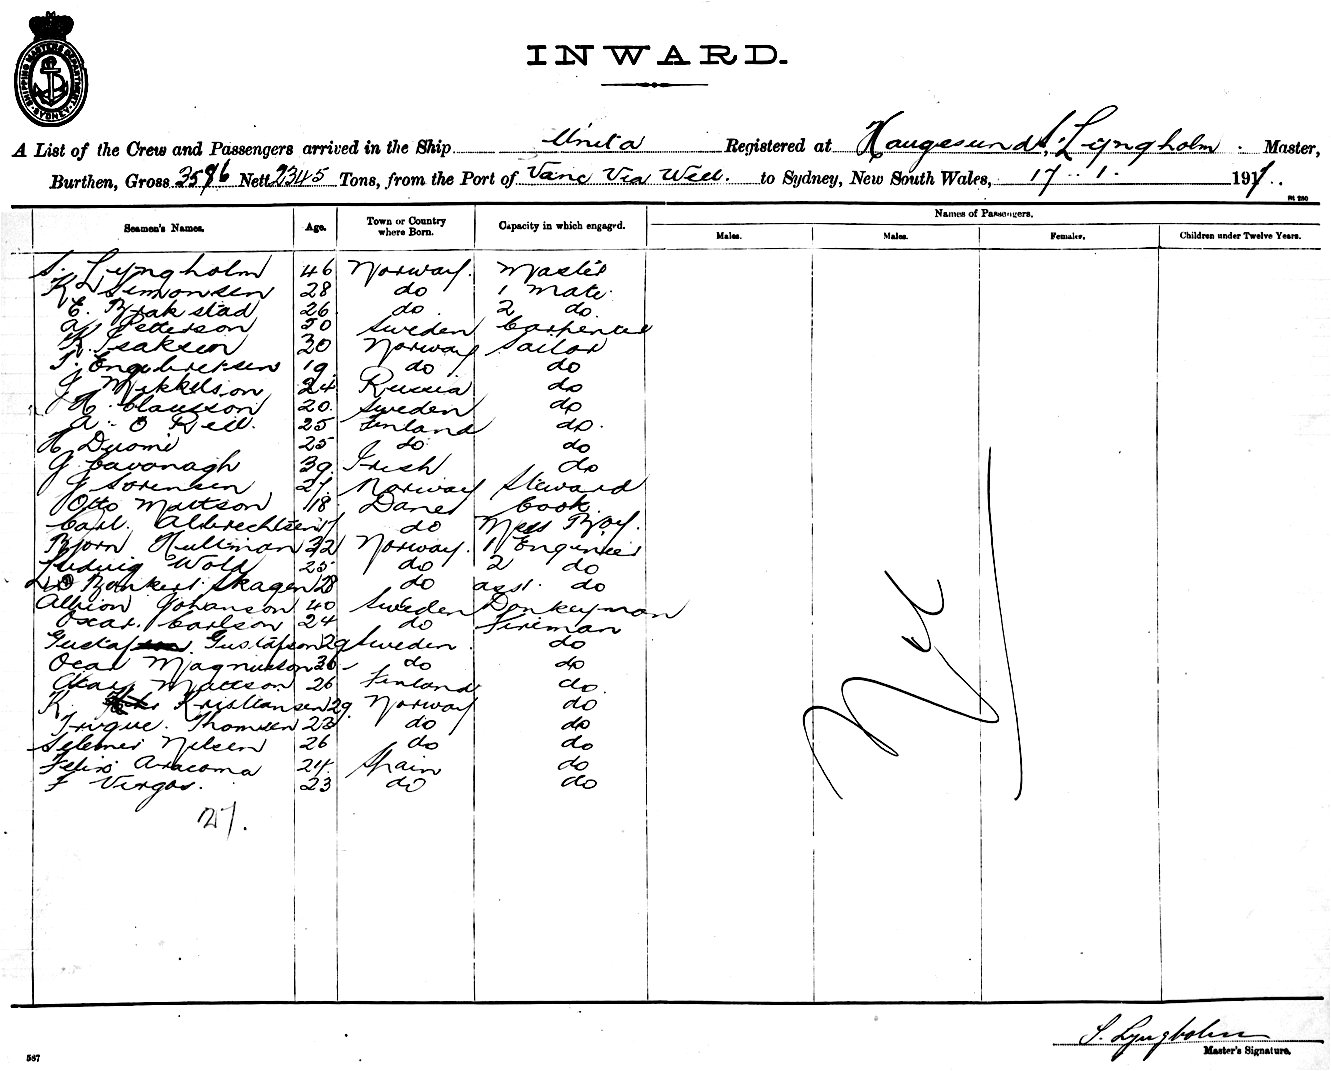 SHIPPING MASTERS DEPARTMENT SYDNEY
INWARD.
A List of the Crew and Passengers arrived in the Ship Unita Registered at Haugesund S. Lyngholm Master,
Burthen, Gross 3596 Nett 2345 Tons, from the Port of Vanc Via Well. to Sydney, New South Wales, 17 1 1917
Seamen's Names. Age. Town or Country where Born. Capacity in which engaged. Names of Passengers.
Males. Males. Females. Children under Twelve Years.
S. Lyngholm 46 Norway. Master
K Simonsen 28 do 1 Mate.
E. Bjakstad 26 do. 2 do.
A. Petterson 50 Sweden Carpenter
K. Isaksen 30 Norway Sailor
T. Engebretsen 19 do do
J Mikkelson 24 Russia do
H. Clausson 20. Sweden do
A. O Reil. 25 Finland do.
H Duomi 25 do do
G Cavonagh 39 Irish do
J Sorensen 27 Norway Steward
Otto Mattson 18 Danes Cook
Carl. Albrechtsen 17 do Mess Boy.
Bjorn Hullman 32 Norway. 1 Engineer
Ludvig Wold 25 do 2 do
Skagen 28 do asst. do
Albion Johanson 40 Sweden Donkeyman
Oscar. Carlson 24 do Fireman
Gustaf Gustafson 29 Sweden do
Ocar Magnusson 36 do do
Mattson 26 Finland do.
K. Kristiansen 29. Norway do
Trygve. Thomsen 23 do do
Selemer Nilsen 26 do do
Felix Aracoma 24 Spain do
F Vergas. 23 do do
27.
Nil
S. Lyngholm
Master's Signature.
587